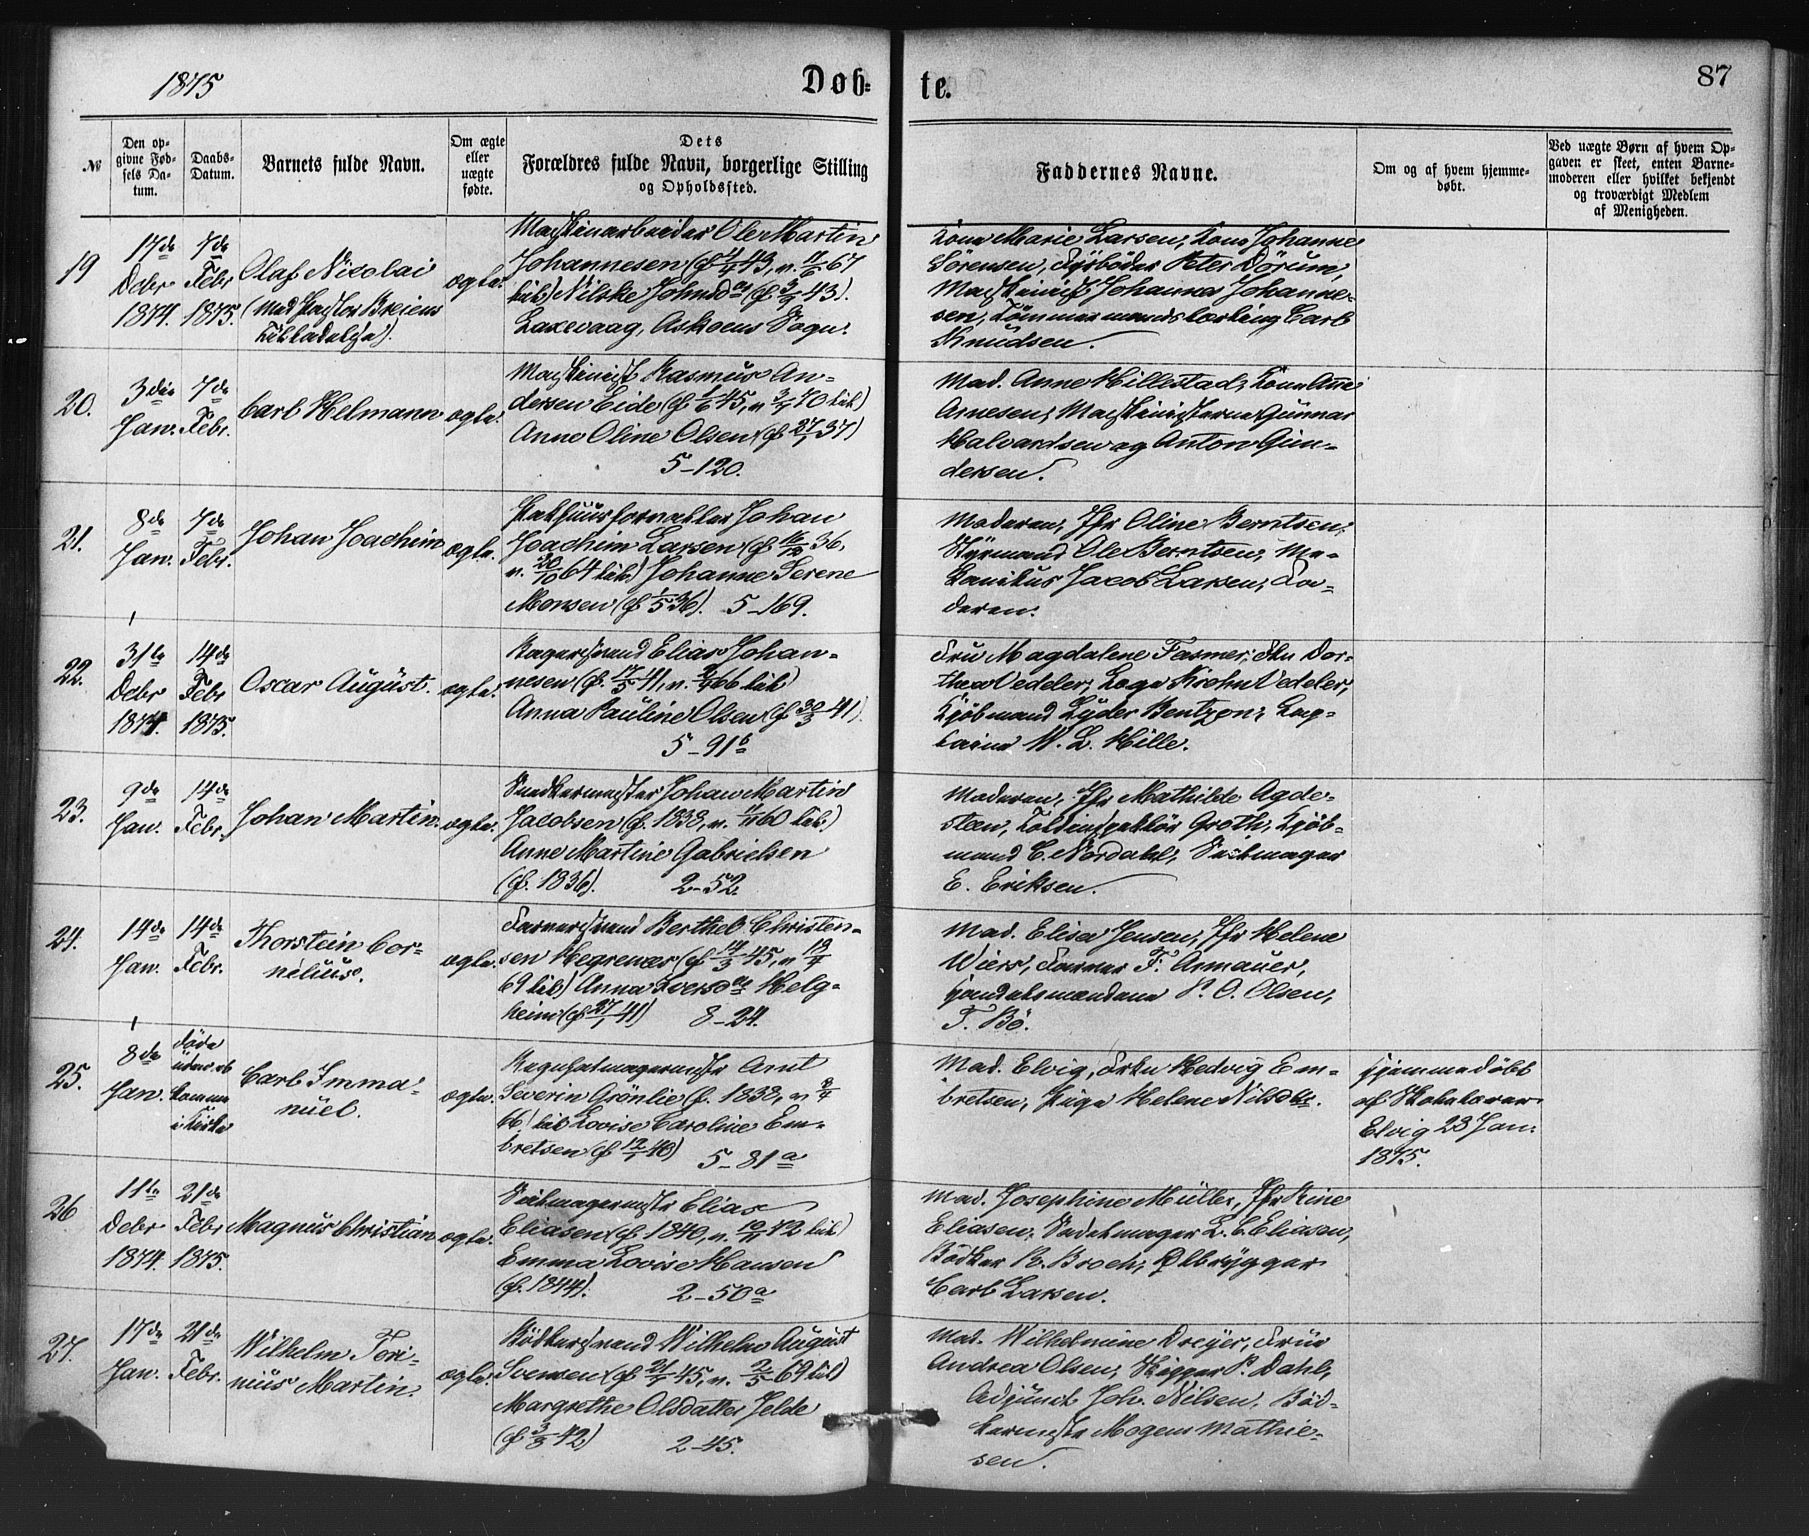 1875
Døb-
te.
87
№
Den op-
givne Fød-
sels Da-
tum.
Daabs-
Datum.
Barnets fulde Navn.
Om ægte
eller
uægte
fødte.
Dets
Forældres fulde Navn, borgerlige Stilling
og Opholdssted.
Faddernes Navne.
Om og af hvem hjemme-
døbt.
Ved uægte Børn af hvem Op-
gaven er skeet, enten Barne-
moderen eller hvilket bekjendt
og troværdigt Medlem
af Menigheden.
19
17de
Debr
1874.
7de
Febr
1875.
Olaf Nicolai
(Med Pastor Breiens
Tilladelse).
ægte.
Maskinarbeider Ole Martin
Johannesen (f 43, v. 67
lüb) Nilske Johnsd (f 43).
Laxevaag, Askøens Sogn.
Kone Marie Larsen, Kone Johanne
Sörensen, Fyrböder Peter Dörum,
Maskinist Johannes Johanne-
sen, Tömmermandslærling Carl
Knudsen.
20.
3die
Jan.
7de
Febr.
Carl Helmann
ægte.
Maskinist Rasmus An-
dersen Eide (f 45, v 70 lüb)
Anne Oline Olsen (f 27/1 37)
5-120.
Mad. Anne Hillestad, Kone Anne
Arnesen, Maskinisterne Gunnar
Halvardsen og Anton Gun-
dersen.
21.
8de
Jan.
7de
Febr.
Johan Joachim
ægte.
Pakhuusforvalter Johan
Joachim Larsen (f 16/12 36,
v. 20/10 64 lüb) Johanne Serene
Monsen (f 1/5 36). 5-169.
Moderen, Jfr Oline Berntsen,
Styrmand Ole Berntsen, Me-
kanikus Jacob Larsen, Fa-
deren.
22.
31te
Debr
1874.
14de
Febr
1875.
Oscar August.
ægte.
Bagersvend Elias Johan-
nesen (f. 17/5 41, v. 66 lüb)
Anna Pauline Olsen (f 30/3 41).
5-91b
Fru Magdalene Fasmer, Frk Dor-
thea Vedeler, Læge Krohn Vedeler,
Kjöbmand Lyder Bentzon, Cap-
taine W. L. Hille.
23.
9de
Jan.
14de
Febr.
Johan Martin.
ægte.
Snedkermester Johan Martin
Jacobsen (f. 1838, v. 60 lüb.)
Anne Martine Gabrielsen
(f. 1836). 2-52.
Moderen, Jfr Mathilde Agde-
steen, Toldinspektör Groth, Kjöb-
mand C. Nordahl, Seilmager
E. Eriksen.
24.
14de
Jan.
14de
Febr.
Thorstein Cor-
nelius.
ægte.
Farversvend Berthel Christen-
sen Hegrenæs (f 14/3 45, v 18/4
69 lüb) Anna Iversd Helg-
heim (f 27/1 41) 8-24.
Mad. Elisa Jensen, Jfr Helene
Wiers, Farver F. Armauer,
Handelsmændene P. O. Olsen,
T. Bö.
25.
8de
Jan.
Döde
uden at
komme
i Kirke
Carl Imma-
nuel.
ægte.
Rebslagermester Arnt
Severin Grönlie (f. 1838, v. 8/4
66 lüb) Lovise Caroline Em-
bretsen (f 12/1 40) 5-81a
Mad. Elvig, Frkn Hedvig Em-
bretsen, Pige Helene Nilsd.
Hjemmedöbt
af Skolelærer
Elvig 23 Jan.
1875.
26
11te
Debr
1874.
21de
Febr
1875.
Magnus Christian
ægte.
Seilmagermester Elias
Eliasen (f. 1840, v. 72 lüb)
Emma Lovise Hansen
(f. 1844). 2-50a
Mad. Josephine Müller, Jfr Rine
Eliasen, Sadelmager L. C. Eliasen,
Bödker R. Broch, Ølbrygger
Carl Larsen.
27.
17de
Jan.
21de
Febr.
Wilhelm Tori-
nius Martin.
ægte.
Bödkersvend Wilhelm August
Svensen (f 21/1 45, v. 2/5 69 lüb)
Margrethe Olsdatter Jelde
(f 3/3 42) 2-45.
Mad. Wilhelmine Dreyer, Frue
Andrea Olsen, Skipper P. Dahl,
Adjunct Joh. Nilsen, Böd-
kermester Mogens Mathie-
sen.